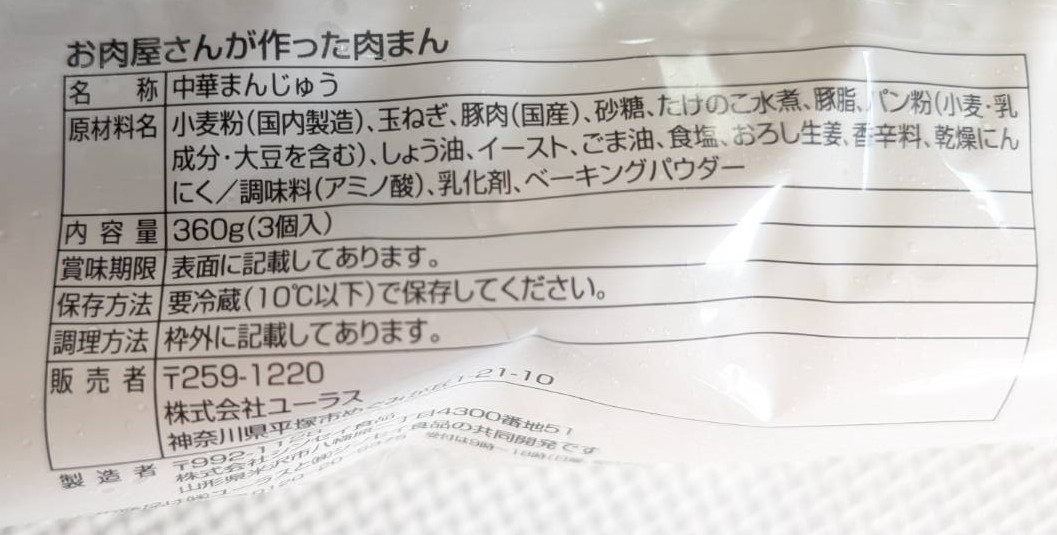 お肉屋さんが作った肉まん
名称 中華まんじゅう
原材料名 小麦粉(国内製造)、玉ねぎ、豚肉(国産)、砂糖、たけのこ水煮、豚脂、パン粉(小麦・乳
成分・大豆を含む)、しょう油、イースト、ごま油、食塩、おろし生姜、香辛料、乾燥にん
にく/調味料(アミノ酸)、乳化剤、ベーキングパウダー
内容量 360g(3個入)
賞味期限 表面に記載してあります。
保存方法 要冷蔵(10℃以下)で保存してください。
調理方法 枠外に記載してあります。
販売者 〒259-1220
株式会社ユーラス
神奈川県平塚市めぐみが丘1-21-10
製造者 〒992-1
株式会社シンセイ食品
山形県米沢市八幡原 丁目4300番地51
食品の共同開発です